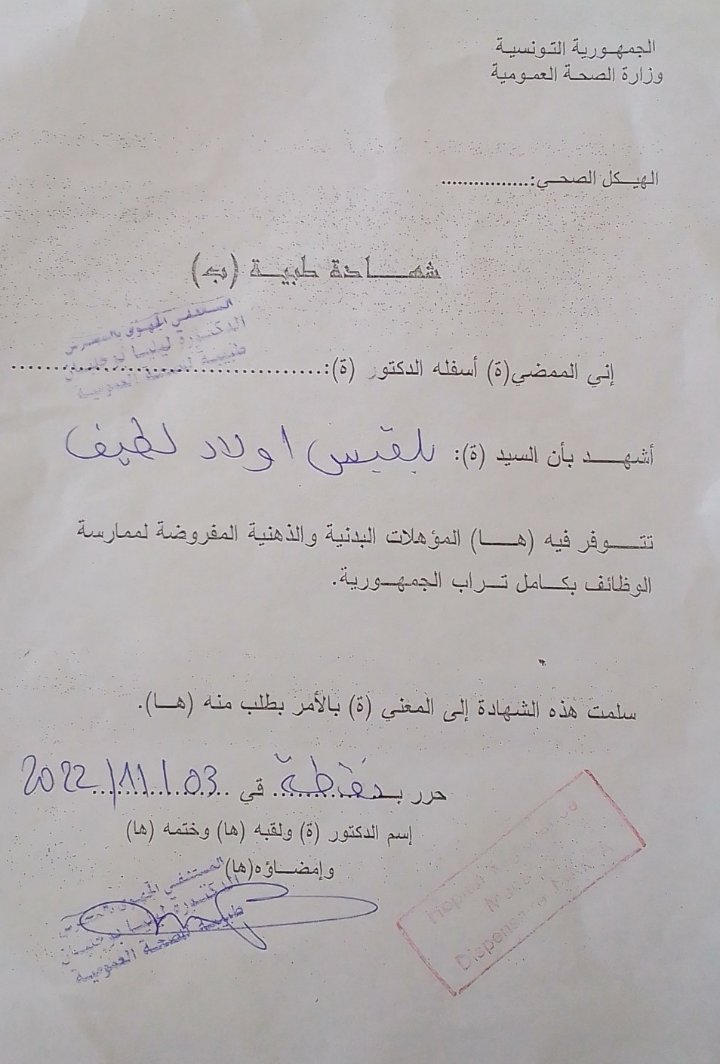 الجمهورية التونسية
وزارة الصحة العمومية
الهيكل الصحي:................
شهادة طبية (ب)
المستشفى الجهوي بالمحرس
الدكتورة ليليا
طبيبة للصحة العمومية
إني الممضي(ة) أسفله الدكتور (ة):....................................
أشهد بأن السيد (ة): بلقيس اولاد لطيف
تتوفر فيه (ها) المؤهلات البدنية والذهنية المفروضة لممارسة
الوظائف بكامل تراب الجمهورية.
سلمت هذه الشهادة إلى المعني (ة) بالأمر بطلب منه (ها).
حرر بـ نقطة في 2022/11/03
إسم الدكتور (ة) ولقبه (ها) وختمه (ها)
وإمضاؤه(ها)
المستشفى الجهوي بالمحرس
الدكتورة ليليا
طبيبة للصحة العمومية
Hopital
Dispensaire